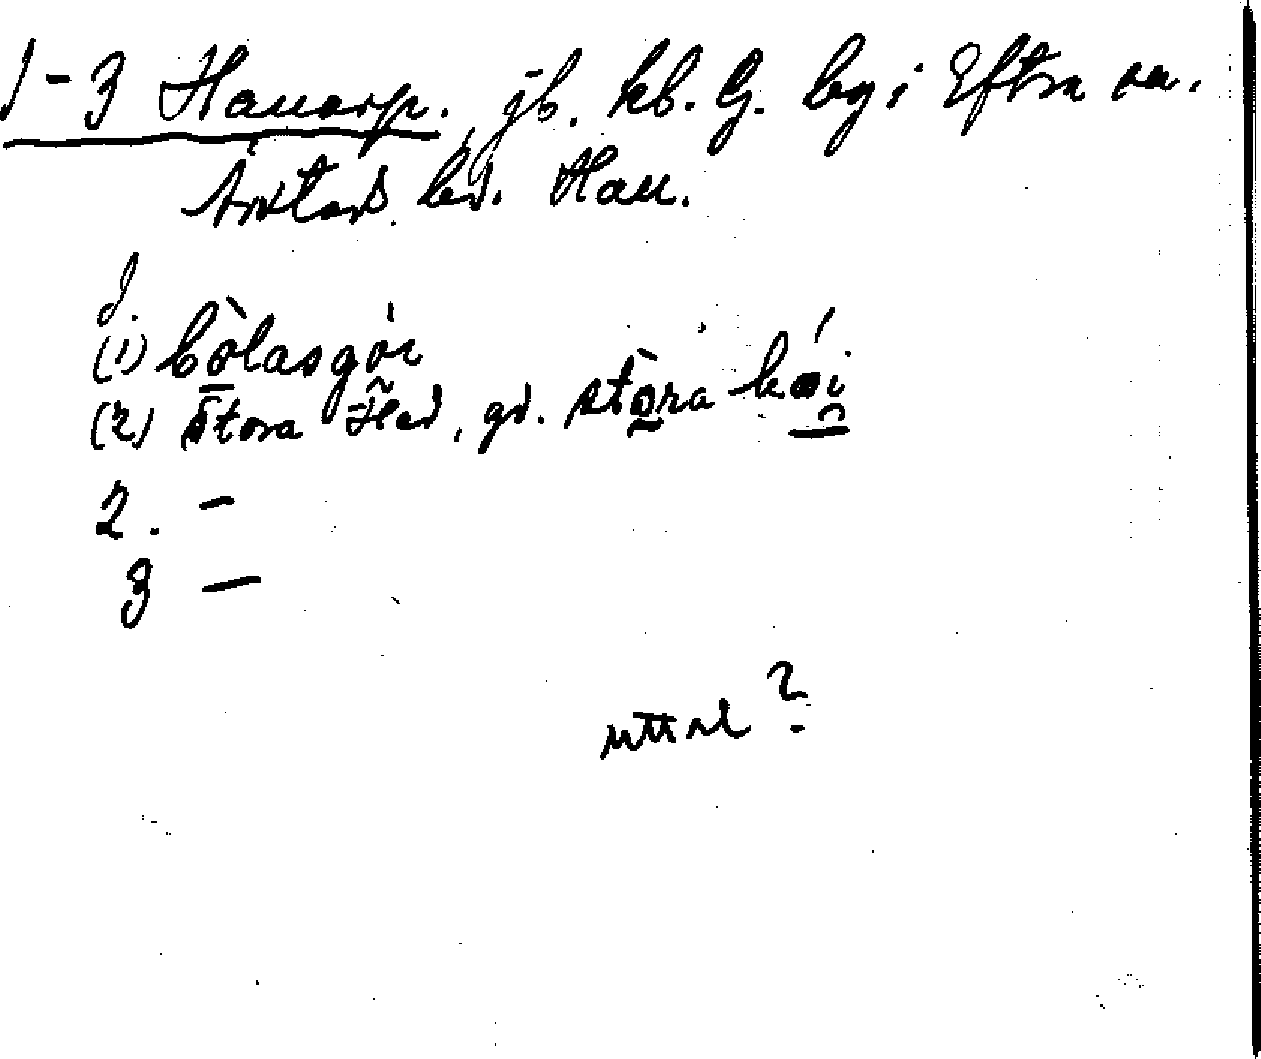 1-3 jb. kb. G. by i Eftra sn.
Årstads hd. Hall.
1.
(1) bòlasgòr
(2) Stora gd. stòra
2. –
3 –
uttal ?